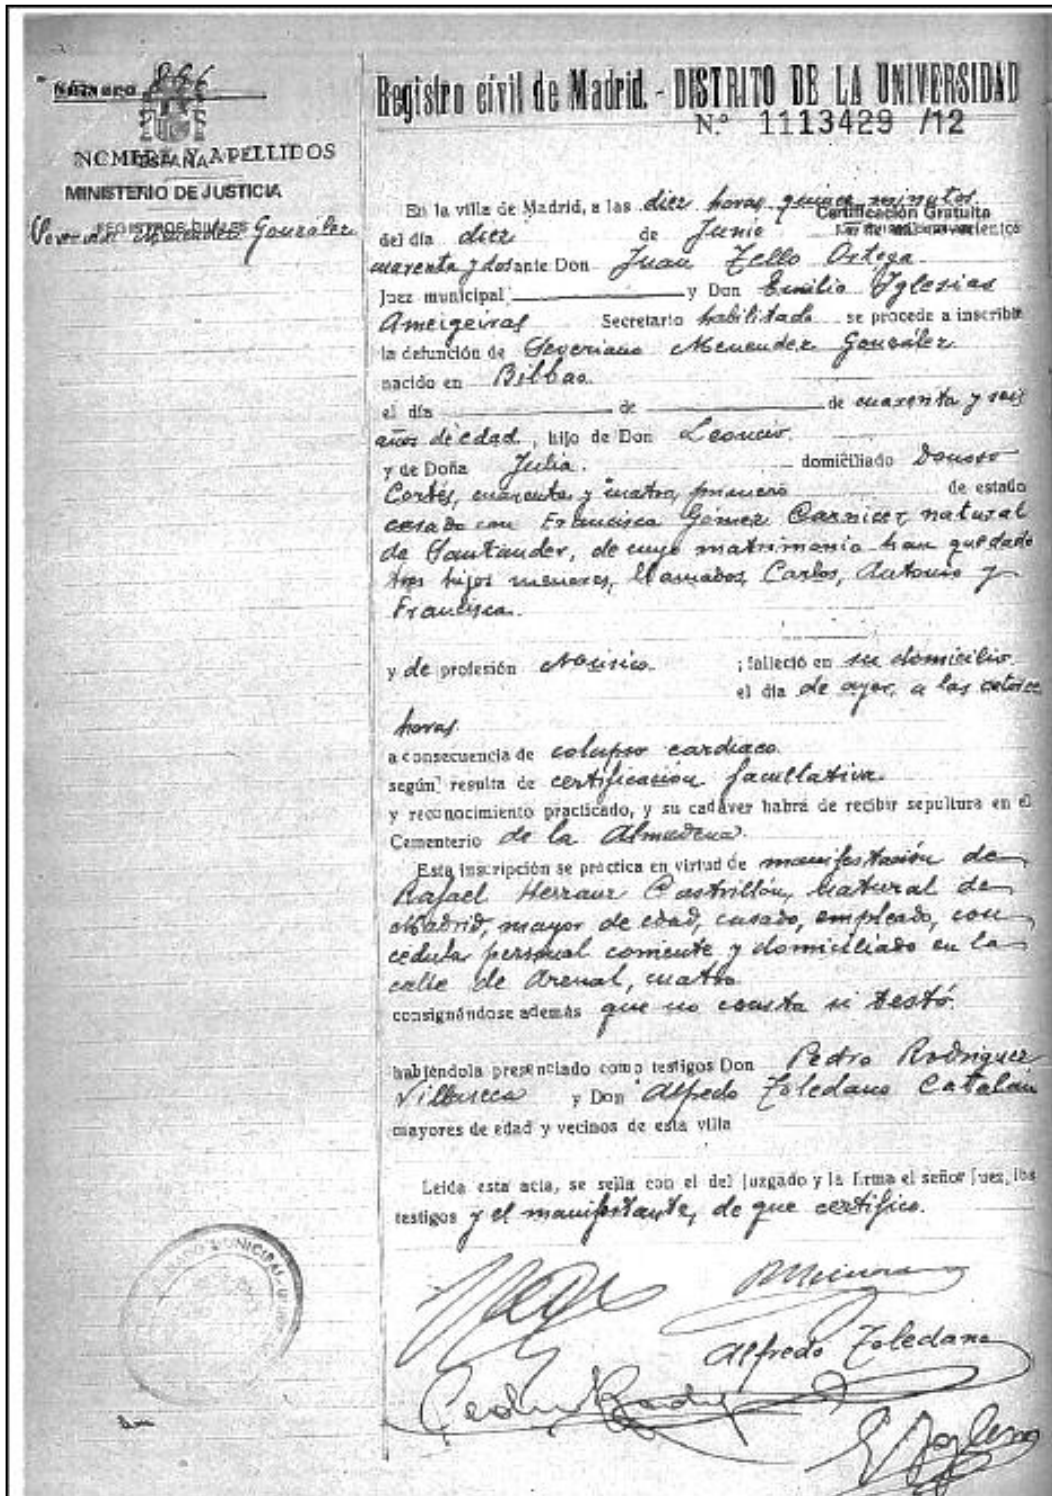 Número 866
ESPAÑA
NOMBRE Y APELLIDOS
MINISTERIO DE JUSTICIA
REGISTROS CIVILES
Severiano Menendez González
Registro civil de Madrid. - DISTRITO DE LA UNIVERSIDAD
N.º 1113429 /12
En la villa de Madrid, a las diez horas quince minutos
Certificación Gratuita
del día diez de Junio de mil novecientos
cuarenta y dos ante Don Juan Tello Ortega
Juez municipal y Don Emilio Yglesias
Ameigeiras Secretario habilitado se procede a inscribir
la defunción de Severiano Menendez González
nacido en Bilbao.
el día de de cuarenta y seis
años de edad, hijo de Don Leoncio.
y de Doña Julia. domiciliado Donoso
Cortés, cuarenta y cuatro, primero de estado
casado con Francisca Gómez Carnicer, natural
de Santander, de cuyo matrimonio han quedado
tres hijos menores, llamados, Carlos, Antonio y
Francisca.
y de profesión Músico. ; falleció en su domicilio.
el día de ayer, a las catorce
horas.
a consecuencia de colapso cardiaco.
según resulta de certificación facultativa
y reconocimiento practicado, y su cadáver habrá de recibir sepultura en el
Cementerio de la Almudena.
Esta inscripción se practica en virtud de manifestación de
Rafael Herranz Castrillón, natural de
Madrid, mayor de edad, casado, empleado, con
cédula personal corriente y domiciliado en la
calle de Arenal, cuatro
consignándose además que no consta si testó.
habiéndola presenciado como testigos Don Pedro Rodriguez
Villaseca y Don Alfredo Toledano Catalán
mayores de edad y vecinos de esta villa
Leída esta acta, se sella con el del Juzgado y la firma el señor Juez, los
testigos y el manifestante, de que certifico.
JUZGADO MUNICIPAL
Alfredo Toledano
Pedro Rodriguez
E Yglesias